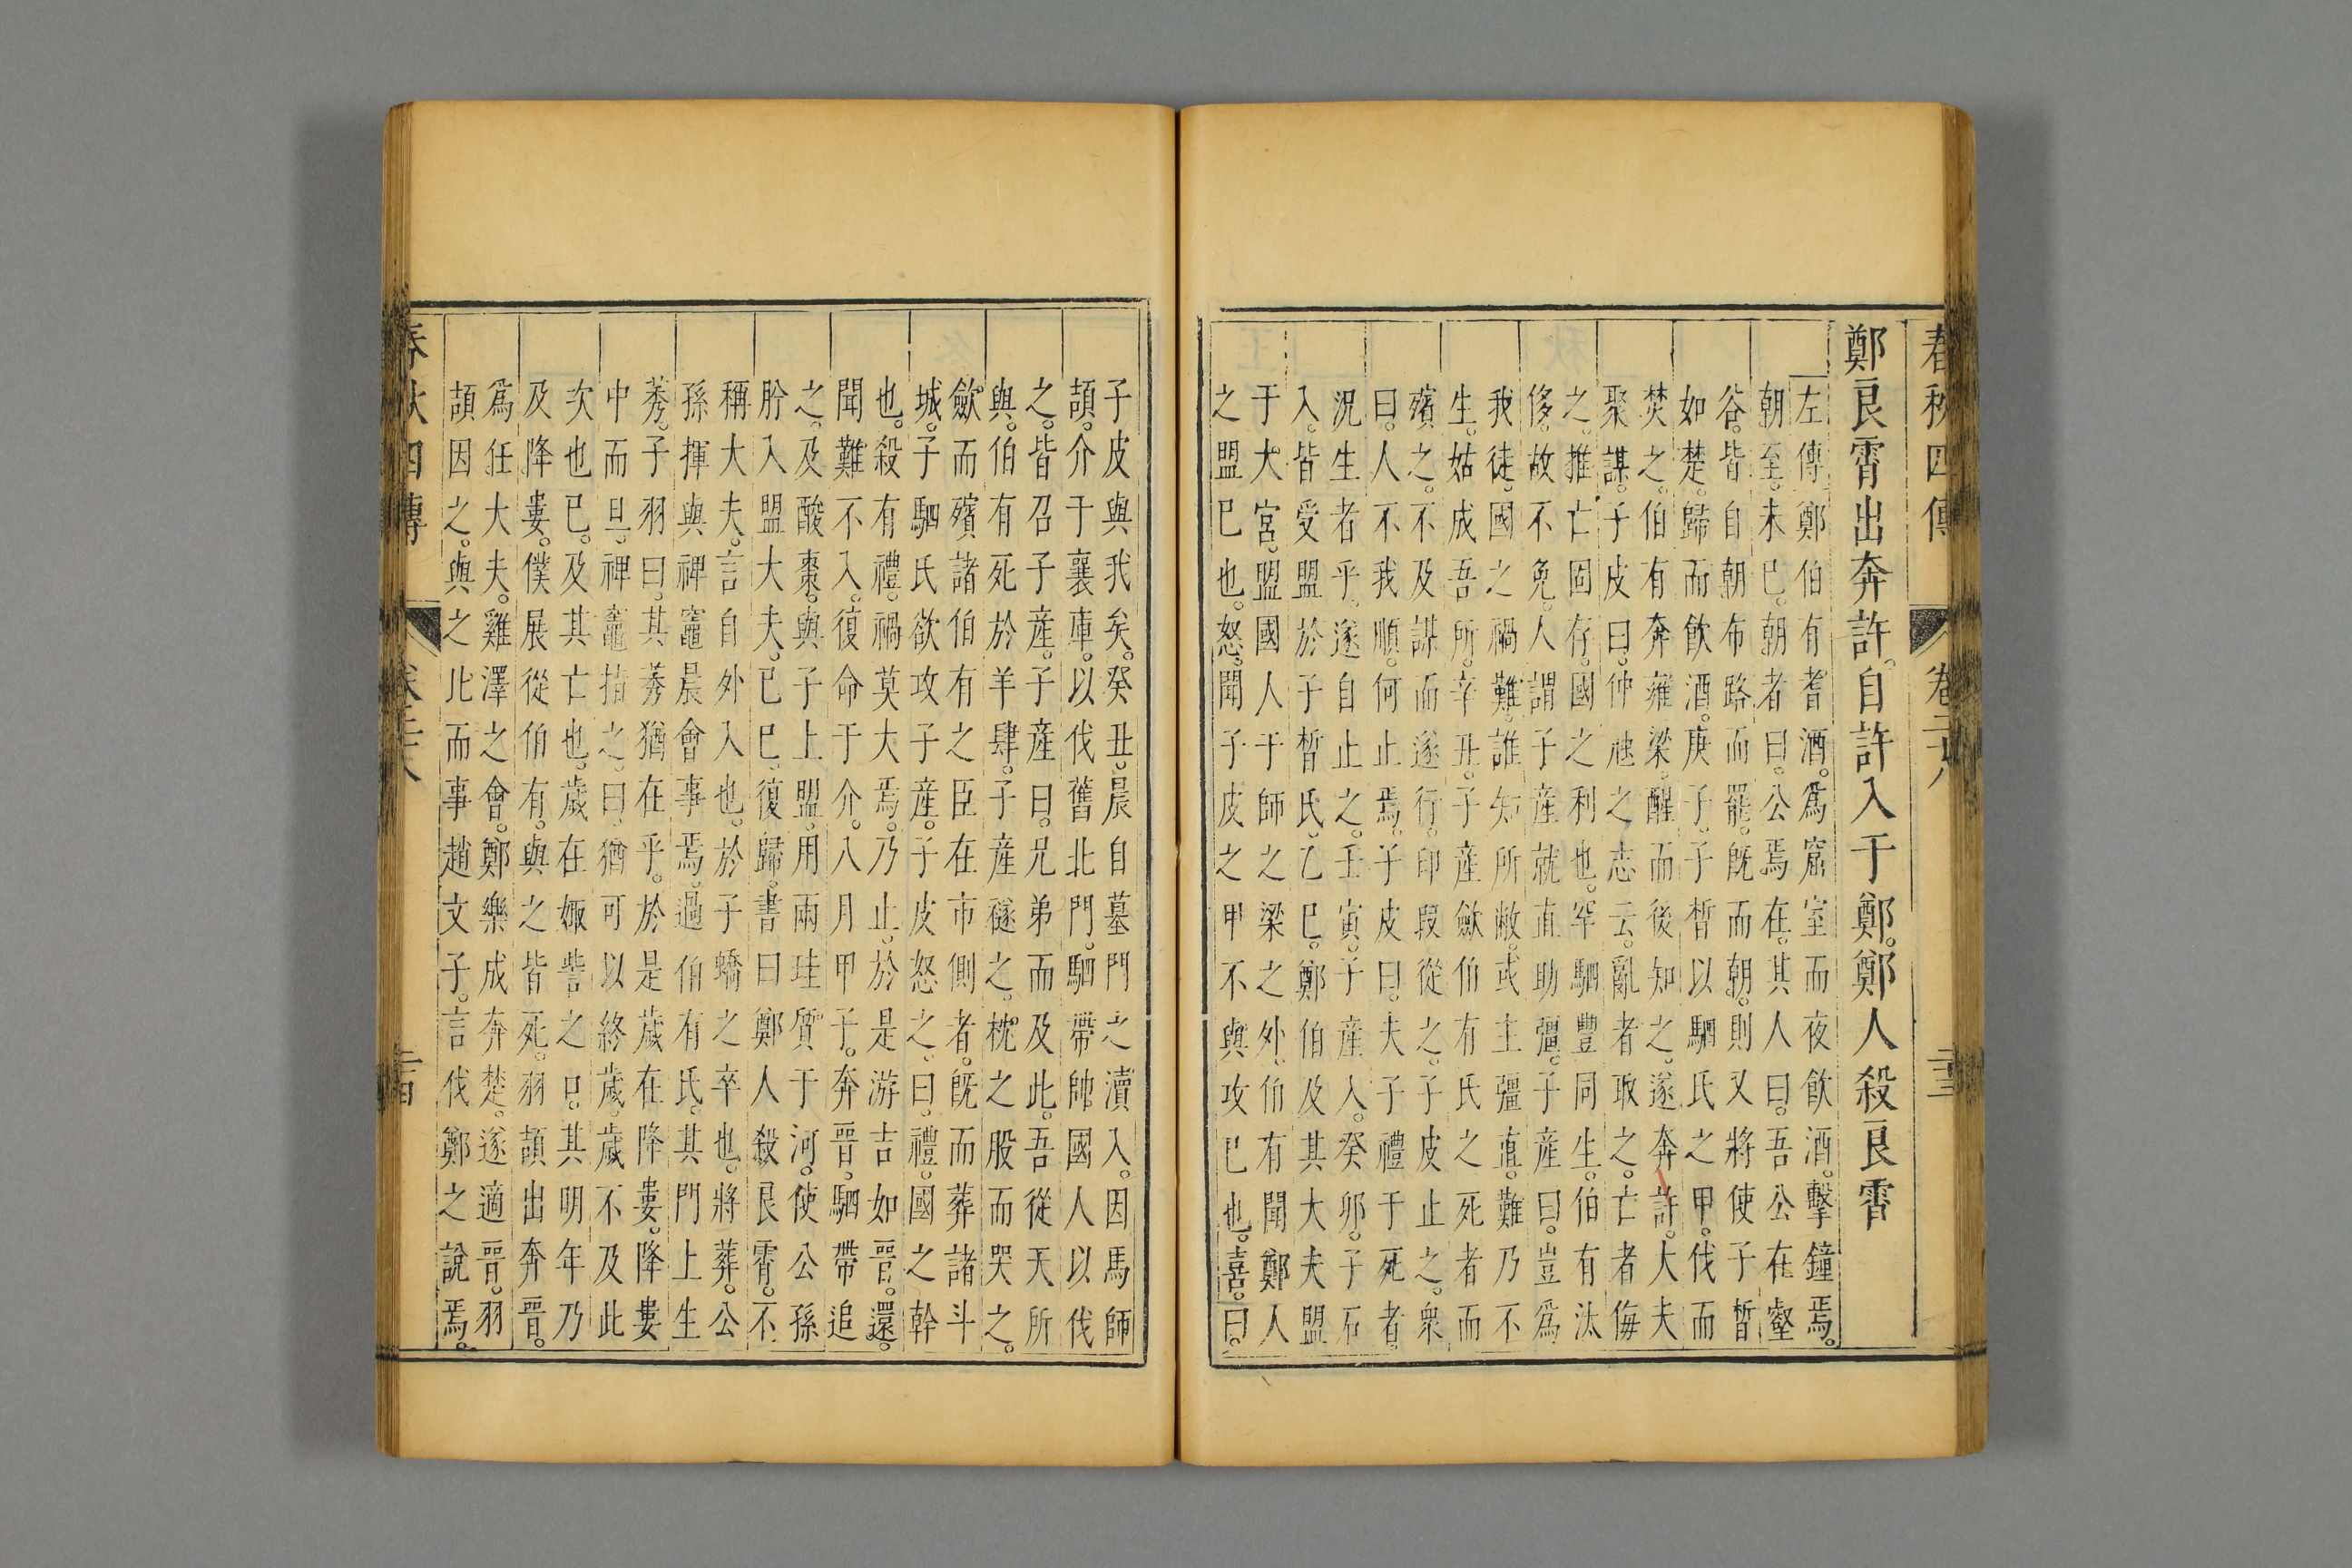 春秋四傳 卷二十八 二十三
鄭良霄出奔許。自許入于鄭。鄭人殺良霄
左傳鄭伯有耆酒。爲窟室而夜飲酒。擊鐘焉。
朝至。未巳。朝者曰。公焉在。其人曰。吾公在壑
谷。皆自朝布路而罷。旣而朝。則又將使子晳
如楚。歸而飲酒。庚子。子晳以駟氏之甲。伐而
焚之。伯有奔雍梁。醒而後知之。遂奔許。大夫
聚謀。子皮曰。仲虺之志云。亂者取之。亡者侮
之。推亡固存。國之利也。罕駟豐同生。伯有汰
侈。故不免。人謂子產就直助彊。子產曰。豈爲
我徒。國之禍難。誰知所敝。或主彊直。難乃不
生。姑成吾所。辛丑。子產斂伯有氏之死者而
殯之。不及謀而遂行。印段從之。子皮止之。衆
曰。人不我順。何止焉。子皮曰。夫子禮于死者。
況生者乎。遂自止之。壬寅。子產入。癸卯。子石
入。皆受盟於子晳氏。乙巳。鄭伯及其大夫盟
于大宮。盟國人于師之梁之外。伯有聞鄭人
之盟巳也。怒。聞子皮之甲不與攻巳也。喜。曰。
子皮與我矣。癸丑。晨自墓門之瀆入。因馬師
頡。介于襄庫。以伐舊北門。駟帶帥國人以伐
之。皆召子產。子產曰。兄弟而及此。吾從天所
與。伯有死於羊肆。子產襚之。枕之股而哭之。
斂而殯諸伯有之臣在市側者。旣而葬諸斗
城。子駟氏欲攻子產。子皮怒之。曰。禮。國之幹
也。殺有禮。禍莫大焉。乃止。於是游吉如晉。還。
聞難不入。復命于介。八月甲子。奔晉。駟帶追
之。及酸棗。與子上盟。用兩珪質于河。使公孫
肸入盟大夫。己巳。復歸。書曰鄭人殺良霄。不
稱大夫。言自外入也。於子蟜之卒也。將葬。公
孫揮與裨竈晨會事焉。過伯有氏。其門上生
莠。子羽曰。其莠猶在乎。於是歲在降婁。降婁
中而旦。裨竈指之。曰。猶可以終歲。歲不及此
次也已。及其亡也。歲在娵訾之口。其明年乃
及降婁。僕展從伯有。與之皆死。羽頡出奔晉。
爲任大夫。雞澤之會。鄭樂成奔楚。遂適晉。羽
頡因之。與之比而事趙文子。言伐鄭之說焉。
春秋四傳 卷二十八 二十四